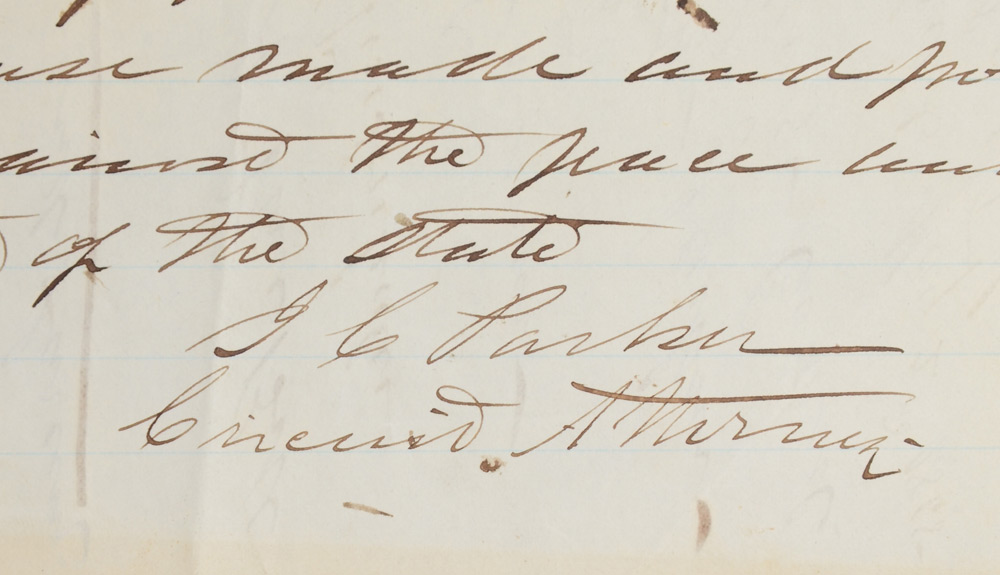 use made and pro
ainst the peace and
of the State
I C Parker
Circuit Attorney